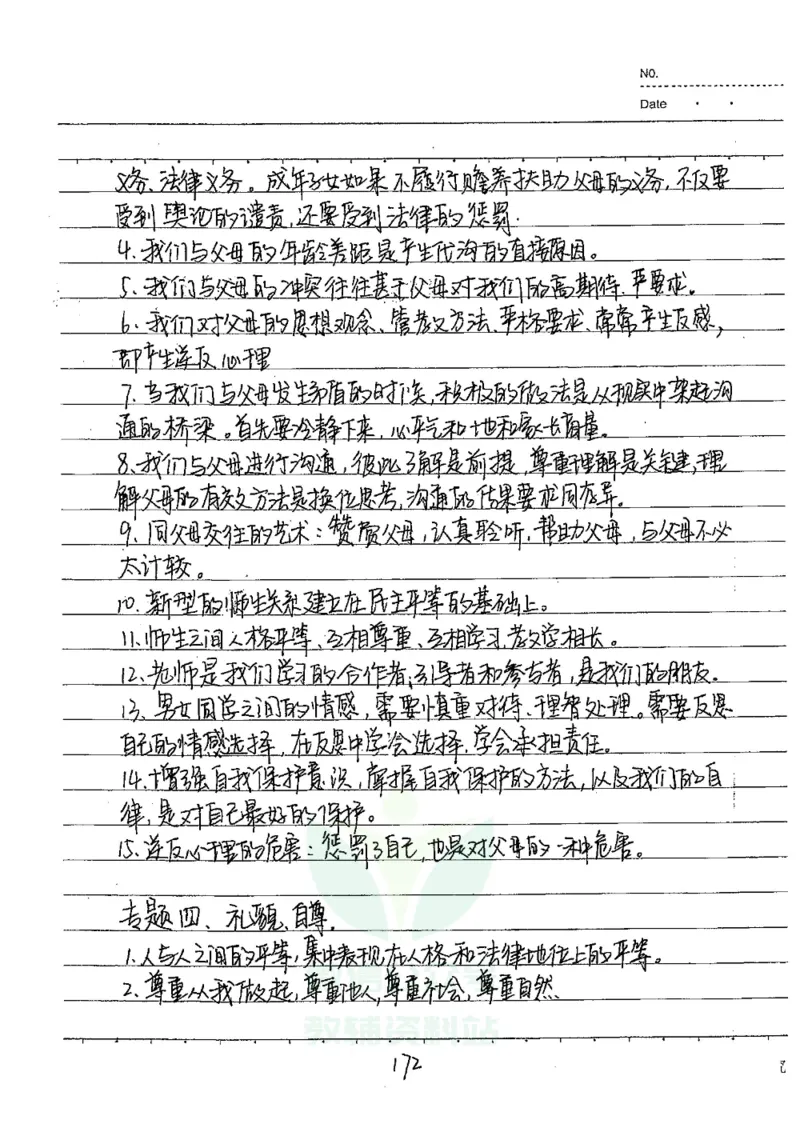 NO.
Date
义务、法律义务。成年子女如果不履行赡养扶助父母的义务,不仅要
受到舆论的谴责,还要受到法律的惩罚.
4.我们与父母的年龄差距是产生代沟的直接原因。
5.我们与父母的冲突往往基于父母对我们的高期待、严要求。
6.我们对父母的思想观念、管教方法、严格要求、常常产生反感,
即产生逆反心理
7.当我们与父母发生矛盾的时候,积极的做法是从现实中架起沟
通的桥梁。首先要冷静下来,心平气和地和家长商量。
8.我们与父母进行沟通,彼此了解是前提,尊重理解是关键,理
解父母的有效方法是换位思考,沟通的结果要求同存异。
9.同父母交往的艺术:赞赏父母,认真聆听,帮助父母,与父母不必
太计较。
10.新型的师生关系建立在民主平等的基础上。
11.师生之间人格平等、互相尊重、互相学习、教学相长。
12.老师是我们学习的合作者、引导者和参与者,是我们的朋友。
13.男女同学之间的情感,需要慎重对待、理智处理。需要反思
自己的情感选择,在反思中学会选择,学会承担责任。
14.增强自我保护意识,掌握自我保护的方法,以及我们的自
律,是对自己最好的保护。
15.逆反心理的危害:惩罚了自己,也是对父母的一种危害。
专题四、礼貌、自尊.
1.人与人之间的平等,集中表现在人格和法律地位上的平等。
2.尊重从我做起,尊重他人,尊重社会,尊重自然.
教辅资料站
172